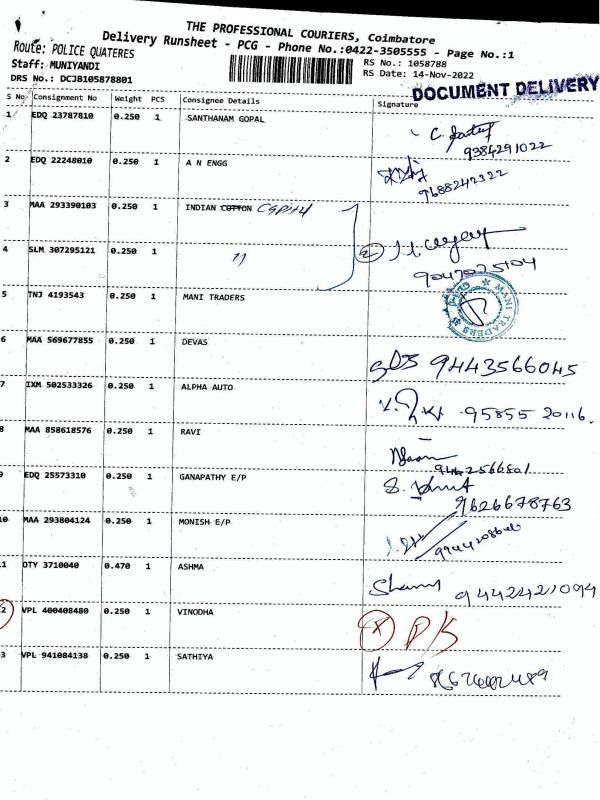 THE PROFESSIONAL COURIERS, Coimbatore
Delivery Runsheet - PCG - Phone No.:0422-3505555 - Page No.:1
Route: POLICE QUATERES
Staff: MUNIYANDI
DRS No.: DCJB105878801
RS No.: 1058788
RS Date: 14-Nov-2022
DOCUMENT DELIVERY
S No Consignment No Weight PCS Consignee Details Signature
1 EDQ 23787810 0.250 1 SANTHANAM GOPAL
9384291022
2 EDQ 22248010 0.250 1 A N ENGG
9688242322
3 MAA 293390103 0.250 1 INDIAN COTTON Capital
4 SLM 307295121 0.250 1 11
2
5 TNJ 4193543 0.250 1 MANI TRADERS
MANI TRADERS
6 MAA 569677855 0.250 1 DEVAS
9443566045
7 IXM 502533326 0.250 1 ALPHA AUTO
95855 20116.
8 MAA 858618576 0.250 1 RAVI
9 EDQ 25573310 0.250 1 GANAPATHY E/P
9626678763
10 MAA 293804124 0.250 1 MONISH E/P
11 OTY 3710040 0.470 1 ASHMA
9442421094
2 VPL 400408480 0.250 1 VINODHA
X D/S
3 VPL 941084138 0.250 1 SATHIYA